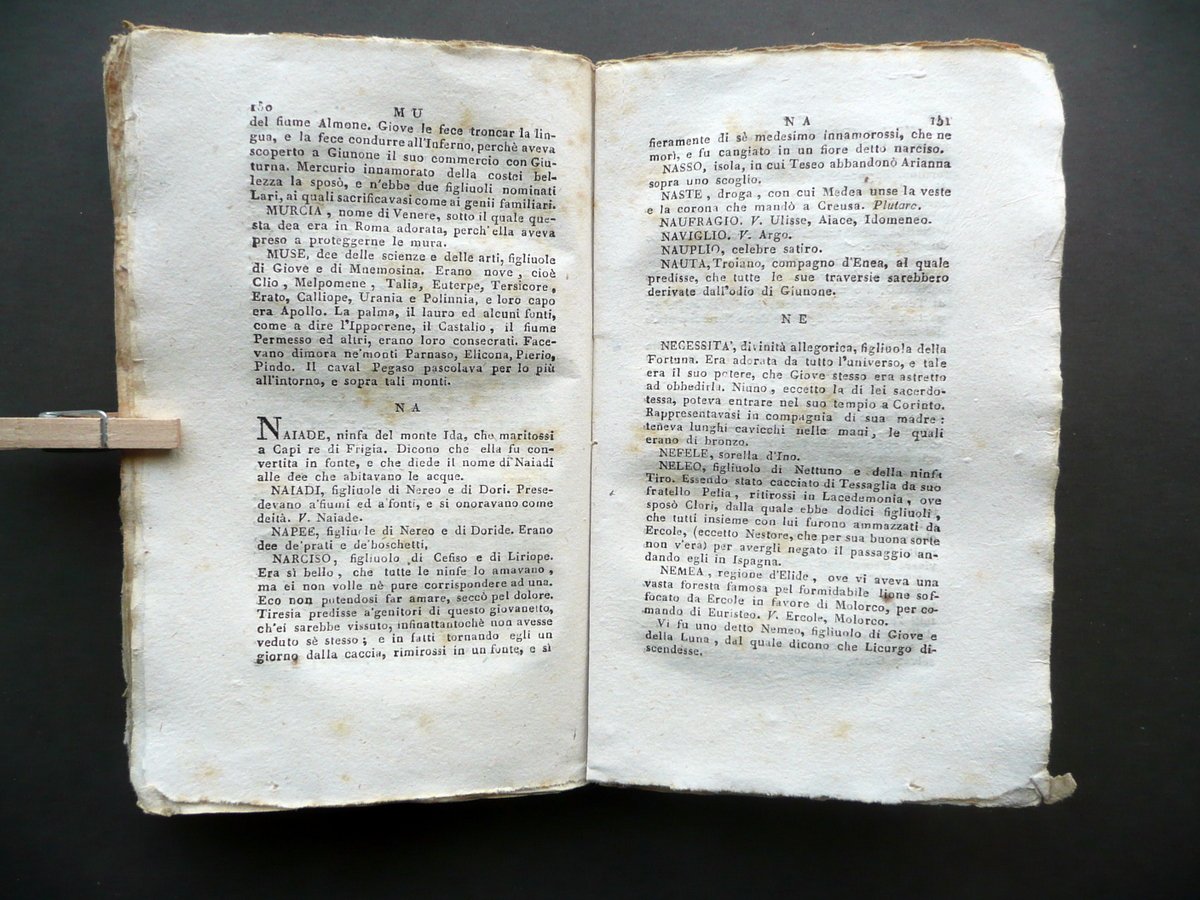 150
MU
del fiume Almone. Giove le fece troncar la lin-
gua, e la fece condurre all'Inferno, perchè aveva
scoperto a Giunone il suo commercio con Giu-
turna. Mercurio innamorato della costei bel-
lezza la sposò, e n'ebbe due figliuoli nominati
Lari, ai quali sacrificavasi come ai genii familiari.
MURCIA, nome di Venere, sotto il quale que-
sta dea era in Roma adorata, perch'ella aveva
preso a proteggerne le mura.
MUSE, dee delle scienze e delle arti, figliuole
di Giove e di Mnemosina. Erano nove, cioè
Clio, Melpomene, Talia, Euterpe, Tersicore,
Erato, Calliope, Urania e Polinnia, e loro capo
era Apollo. La palma, il lauro ed alcuni fonti,
come a dire l'Ippocrene, il Castalio, il fiume
Permesso ed altri, erano loro consecrati. Face-
vano dimora ne'monti Parnaso, Elicona, Pierio,
Pindo. Il caval Pegaso pascolava per lo più
all'intorno, e sopra tali monti.
NA
NAIADE, ninfa del monte Ida, che maritossi
a Capi re di Frigia. Dicono che ella fu con-
vertita in fonte, e che diede il nome di Naiadi
alle dee che abitavano le acque.
NAIADI, figliuole di Nereo e di Dori. Prese-
devano a'fiumi ed a'fonti, e si onoravano come
deità. V. Naiade.
NAPEE, figliuole di Nereo e di Doride. Erano
dee de'prati e de'boschetti,
NARCISO, figliuolo di Cefiso e di Liriope.
Era sì bello, che tutte le ninfe lo amavano,
ma ei non volle nè pure corrispondere ad una.
Eco non potendosi far amare, seccò pel dolore.
Tiresia predisse a'genitori di questo giovanetto,
ch'ei sarebbe vissuto, infinattantochè non avesse
veduto sè stesso; e in fatti tornando egli un
giorno dalla caccia, rimirossi in un fonte, e sì
NA
151
fieramente di sè medesimo innamorossi, che ne
morì, e fu cangiato in un fiore detto narciso.
NASSO, isola, in cui Teseo abbandonò Arianna
sopra uno scoglio.
NASTE, droga, con cui Medea unse la veste
e la corona che mandò a Creusa. Plutarc.
NAUFRAGIO. V. Ulisse, Aiace, Idomeneo.
NAVIGLIO. V. Argo.
NAUPLIO, celebre satiro.
NAUTA, Troiano, compagno d'Enea, al quale
predisse, che tutte le sue traversie sarebbero
derivate dall'odio di Giunone.
NE
NECESSITA', divinità allegorica, figliuola della
Fortuna. Era adorata da tutto l'universo, e tale
era il suo potere, che Giove stesso era astretto
ad obbedirla. Niuno, eccetto la di lei sacerdo-
tessa, poteva entrare nel suo tempio a Corinto.
Rappresentavasi in compagnia di sua madre:
teneva lunghi cavicchi nelle mani, le quali
erano di bronzo.
NEFELE, sorella d'Ino.
NELEO, figliuolo di Nettuno e della ninfa
Tiro. Essendo stato cacciato di Tessaglia da suo
fratello Pelia, ritirossi in Lacedemonia, ove
sposò Clori, dalla quale ebbe dodici figliuoli,
che tutti insieme con lui furono ammazzati da
Ercole, (eccetto Nestore, che per sua buona sorte
non v'era) per avergli negato il passaggio an-
dando egli in Ispagna.
NEMEA, regione d'Elide, ove vi aveva una
vasta foresta famosa pel formidabile lione sof-
focato da Ercole in favore di Molorco, per co-
mando di Euristeo. V. Ercole, Molorco.
Vi fu uno detto Nemeo, figliuolo di Giove e
della Luna, dal quale dicono che Licurgo di-
scendesse.